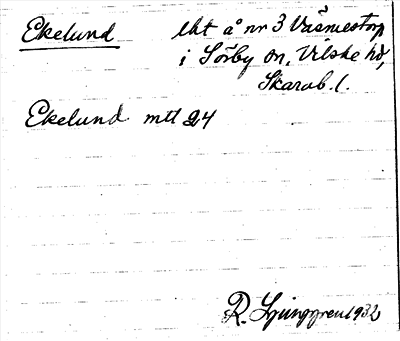 Ekelund lht å nr 3 Väsmestorp
i Sörby sn, Vilske hd,
Skarab. l.
Ekelund mtt 24
R. Ljunggren 1932